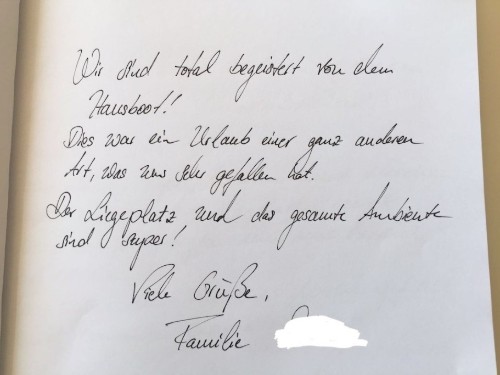 Wir sind total begeistert von dem
Hausboot!
Dies war ein Urlaub einer ganz anderen
Art, was uns sehr gefallen hat.
Der Liegeplatz und das gesamte Ambiente
sind super!
Viele Grüße,
Familie